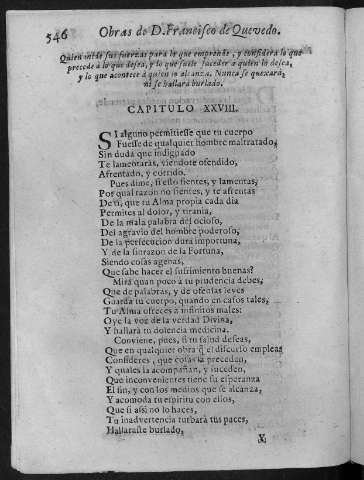 546
Obras de D. Francisco de Quevedo.
Quien mide sus fuerzas para lo que emprende, y considera lo que
precede à lo que desea, y lo que suele suceder à quien lo desea,
y lo que acontece à quien lo alcanza. Nunca se quexarà,
ni se hallarà burlado.
CAPITULO XXVIII.
SI alguno permitiesse que tu cuerpo
Fuesse de qualquier hombre maltratado,
Sin duda que indignado
Te lamentaras, viendote ofendido,
Afrentado, y corrido.
Pues dime, si esso sientes, y lamentas,
Por qual razon no sientes, y te afrentas
De ti, que tu Alma propia cada dia
Permites al dolor, y tirania,
De la mala palabra del ocioso,
Del agravio del hombre poderoso,
De la persecucion dura importuna,
Y de la sinrazon de la Fortuna,
Siendo cosas agenas,
Que sabe hacer el sufrimiento buenas?
Mira quan poco à tu prudencia debes;
Que de palabras, y de ofensas leves
Guarda tu cuerpo, quando en casos tales,
Tu Alma ofreces à infinitos males:
Oye la voz de la verdad Divina,
Y hallarà tu dolencia medicina.
Conviene, pues, si tu salud deseas,
Que en qualquier obra q̃ el discurso empleas
Consideres, que cosas la preceden,
Y quales la acompañan, y suceden,
Que inconvenientes tiene su esperanza
El fin, y con los medios que se alcanza,
Y acomoda tu espiritu con ellos,
Que si assi no lo haces,
Tu inadvertencia turbarà tus paces,
Hallaraste burlado,
Y